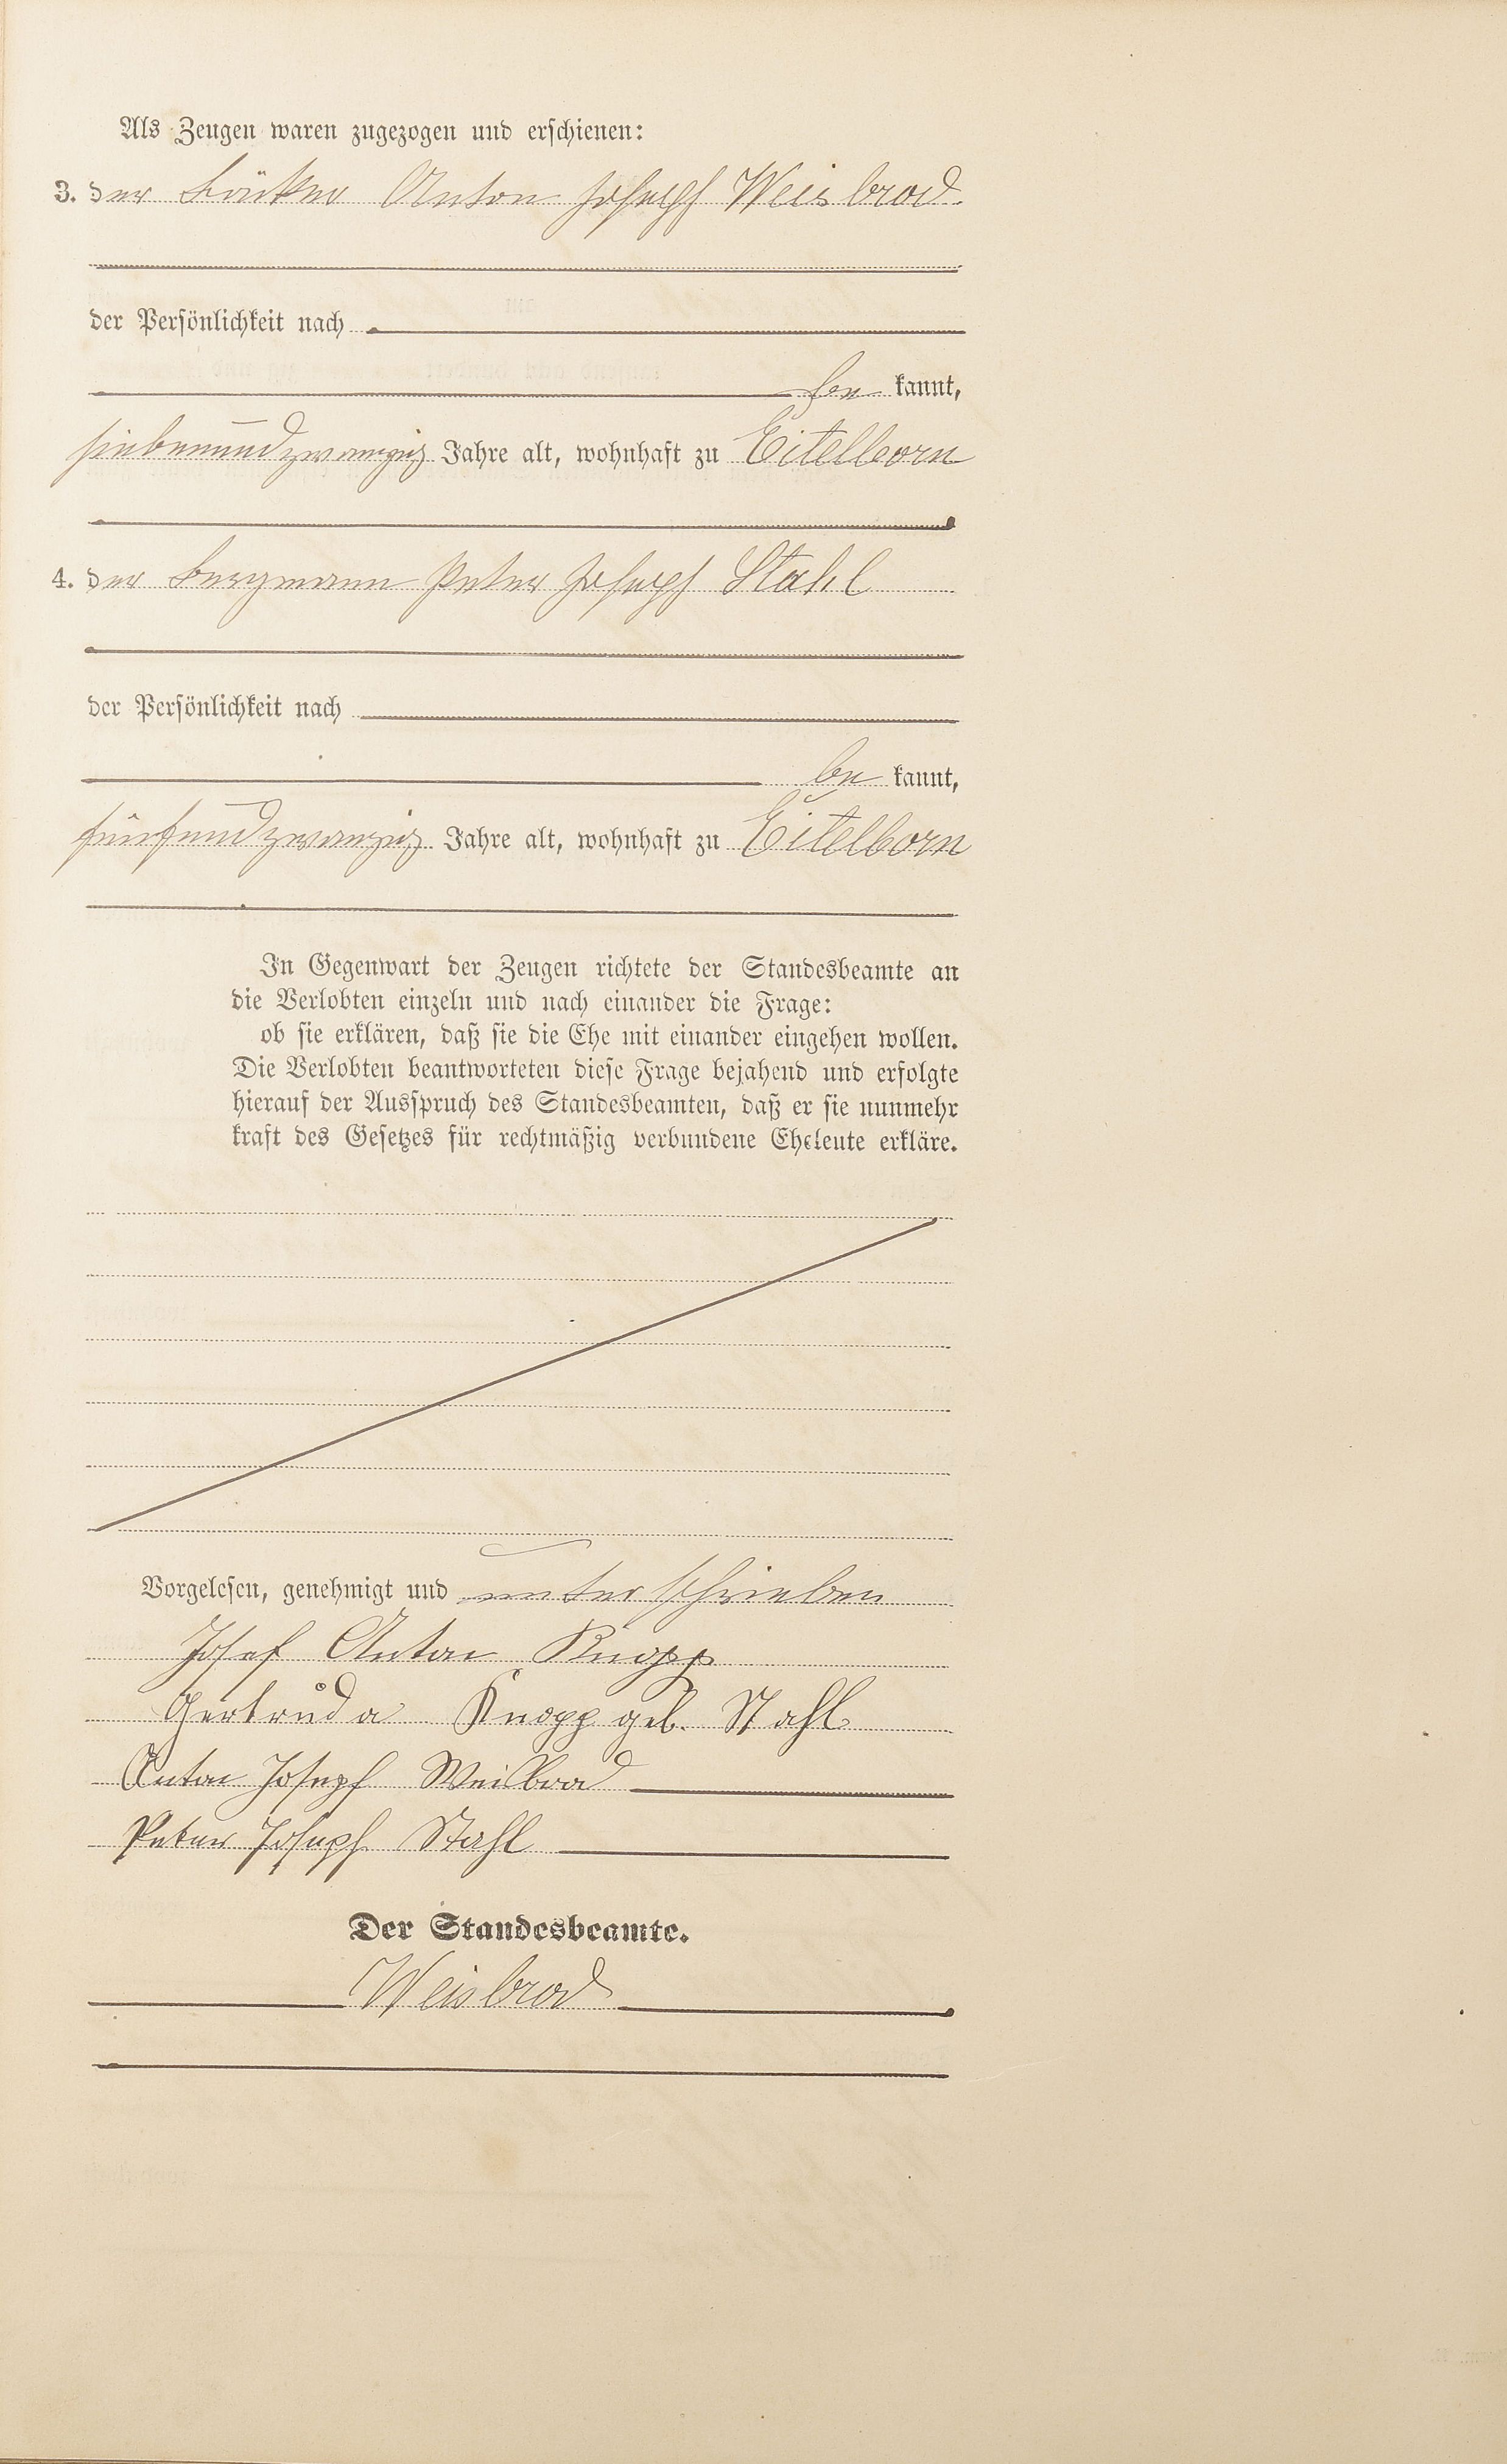 Als Zeugen waren zugezogen und erschienen:
3. der Bäcker Anton Joseph Weisbrod
der Persönlichkeit nach
be kannt,
siebenundzwanzig Jahre alt, wohnhaft zu Eitelborn
4. der Bergmann Peter Joseph Stahl
der Persönlichkeit nach
be kannt,
fünfundzwanzig Jahre alt, wohnhaft zu Eitelborn
In Gegenwart der Zeugen richtete der Standesbeamte an
die Verlobten einzeln und nach einander die Frage:
ob sie erklären, daß sie die Ehe mit einander eingehen wollen.
Die Verlobten beantworteten diese Frage bejahend und erfolgte
hierauf der Ausspruch des Standesbeamten, daß er sie nunmehr
kraft des Gesetzes für rechtmäßig verbundene Eheleute erkläre.
Vorgelesen, genehmigt und unterschrieben
Josef Anton Knopp
Gertruda Knopp geb. Stahl
Anton Joseph Weisbrod
Peter Joseph Stahl
Der Standesbeamte.
Weisbrod